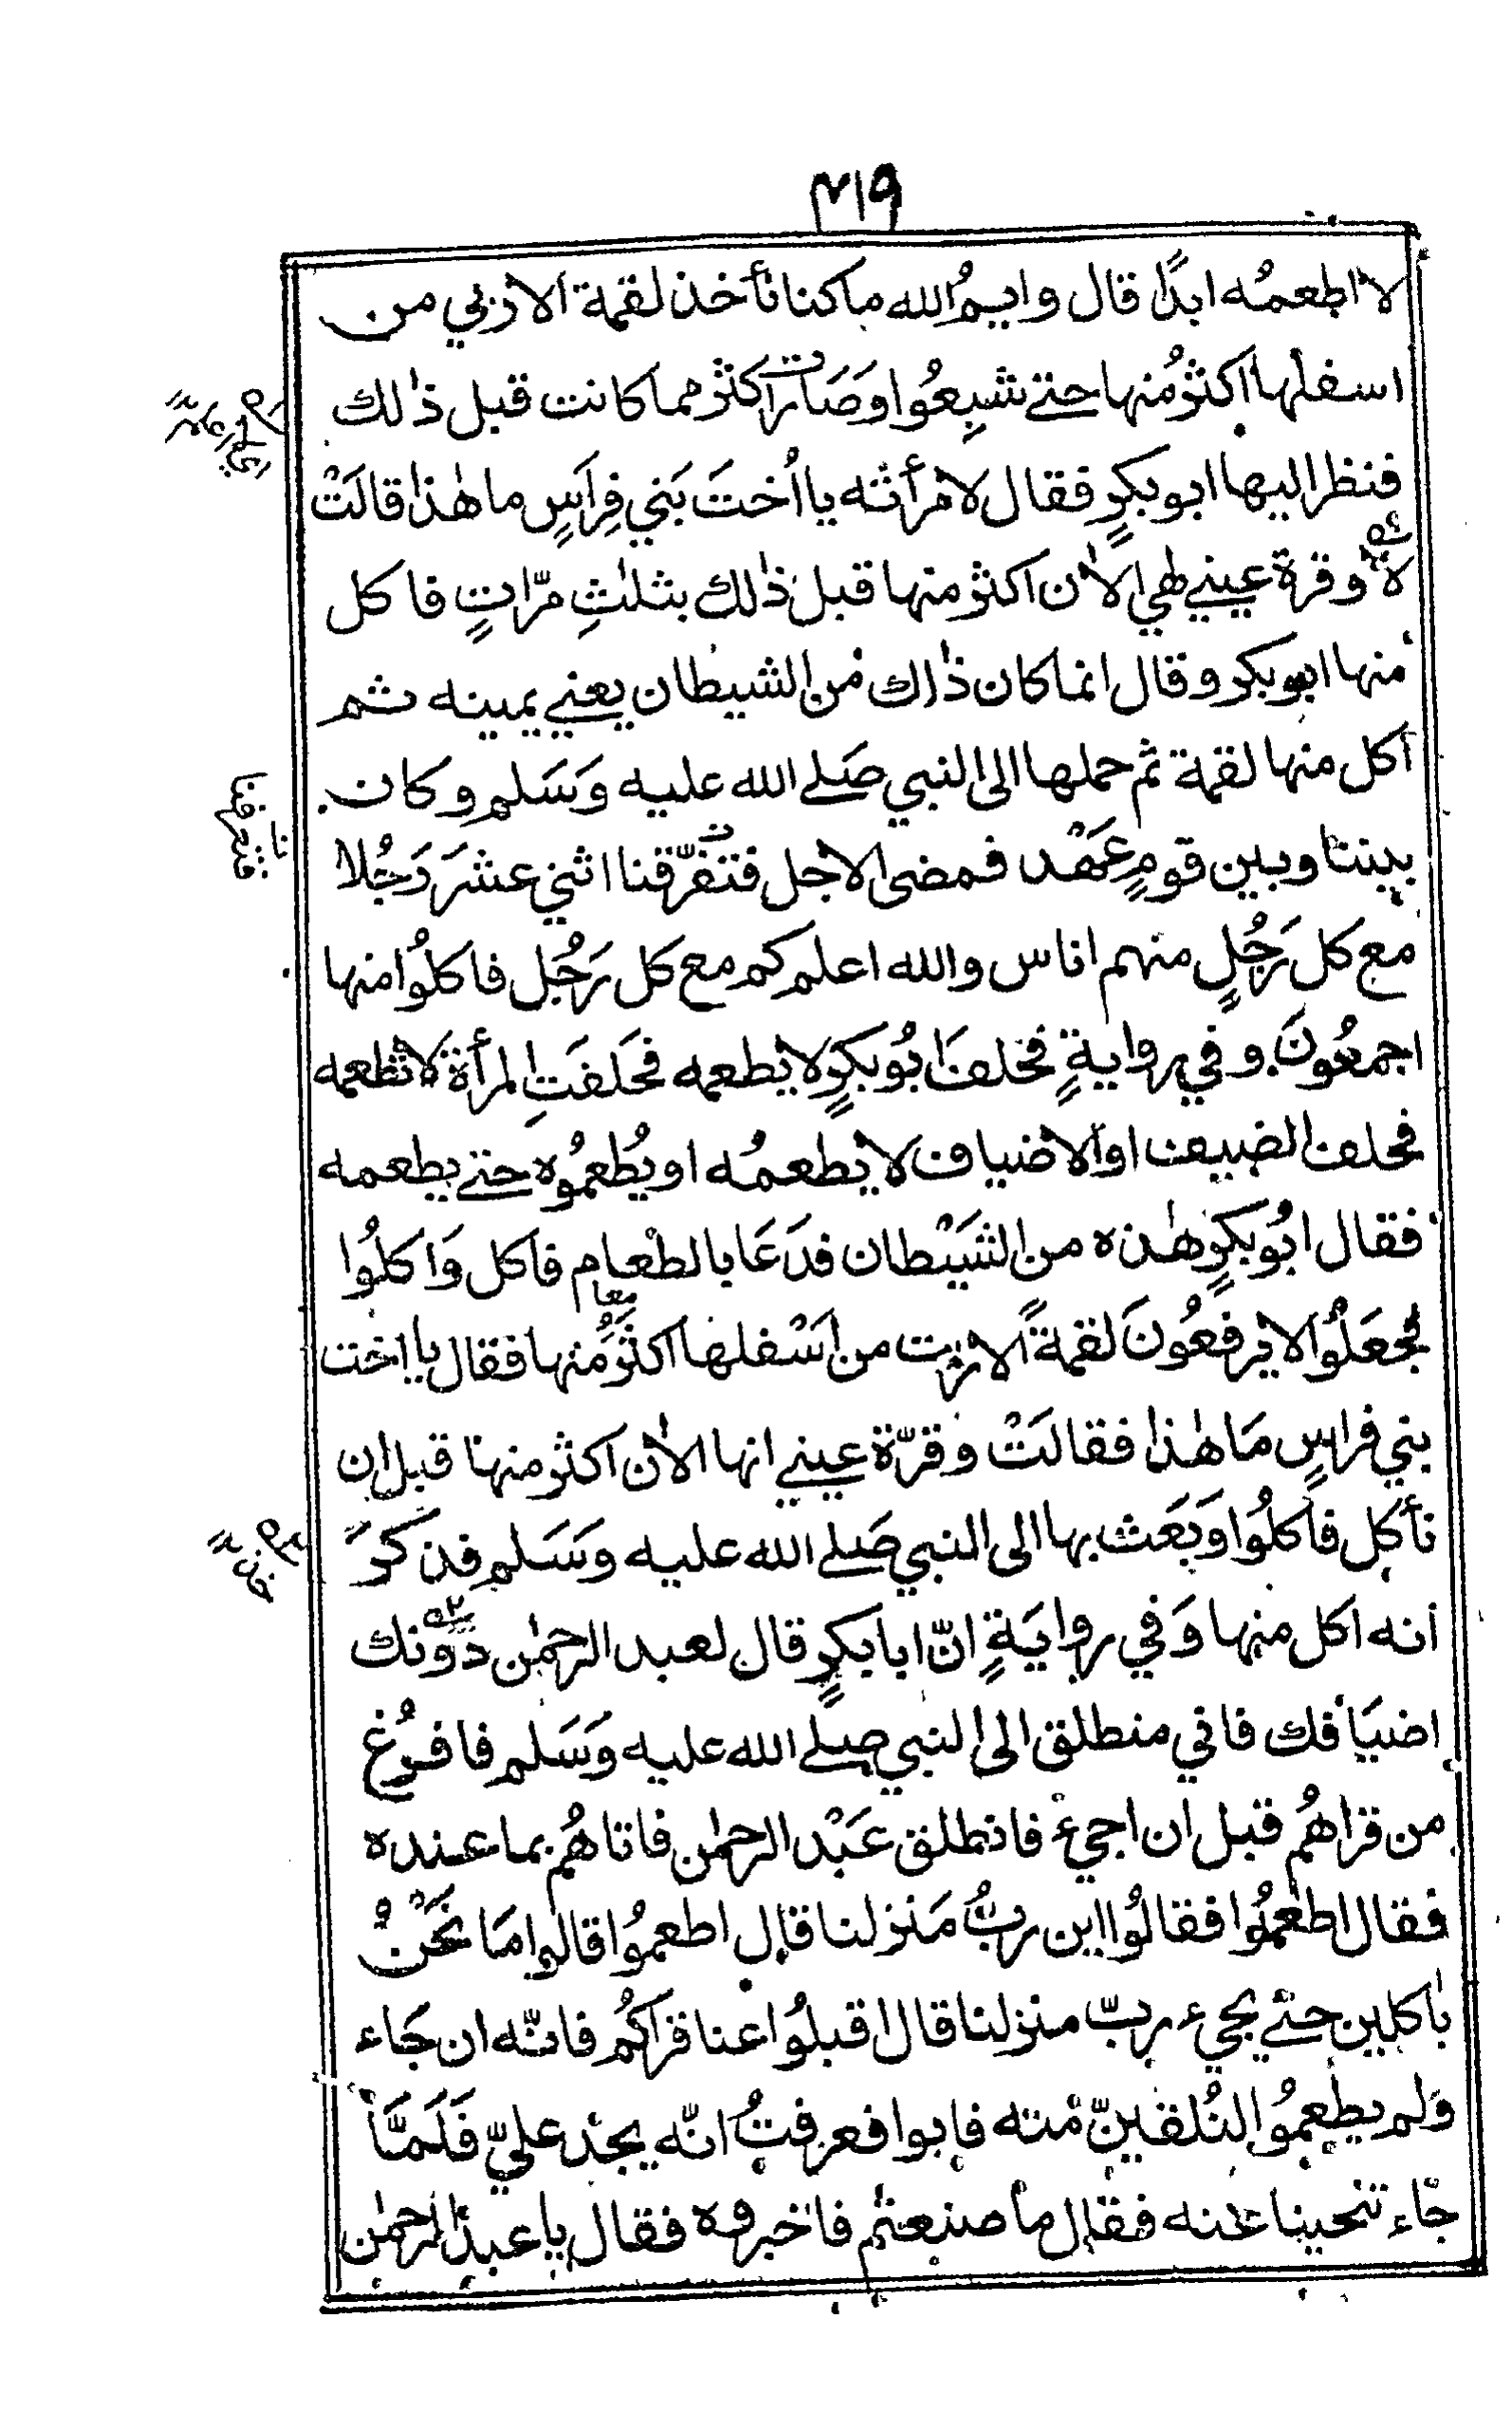 ٣١٩
لا اطعمُه ابدًا قال وايمُ الله ماكنا نأخذ لقمة الا ربي من
اسفلها اكثرُ منها حتے شبِعُوا وصَارَت اكثر مما كانت قبل ذٰلك
فنظر اليها ابو بكرٍ فقال لامرأته يا اُختَ بَني فِراسٍ ما هٰذا قالَتْ
لا وقرة عينے لهي الاٰن اكثر منها قبل ذٰلك بثلٰثِ مرّاتٍ فاكل
منها ابو بكر وقال انما كان ذٰلك من الشيطان يعنے يمينه ثم
اكل منها لقمة ثم حملها الى النبي صَلے الله عليه وَسَلم وكان
بيننا وبين قومٍ عَهْد فمضى الاجل فتفرّقنا اثني عشرَ رَجُلا
مع كل رَجُلٍ منهم اناس والله اعلم كم مع كل رَجُل فاكلُوا منها
اجمعُونَ وفي روايةٍ فحلف اَبُو بكرٍ لا يطعمه فحَلفَتِ المرأة لا تطعمه
فحلف الضيف او الاضياف لا يطعمُه او يُطعمُوه حتے يطعمه
فقال ابُو بكرٍ هٰذه من الشَيْطان فدَعَا بالطعام فاكل وَاكلُوا
فجعَلُوا لا يرفعُونَ لقمةً الا ربت من اَسْفلها اكثرَُ منها فقال يا اخت
معا
بني فراسٍ مَا هٰذا فقالَتْ وقرّة عينے انها الاٰن اكثر منها قبل ان
نأكل فاكلُوا وبَعَث بها الى النبي صَلے الله عليه وَسَلم فذكرَ
انه اكل منها وَفي روايَةٍ انّ ابا بكرٍ قال لعبد الرحمٰن دُونك
اضيَافك فاني منطلق الى النبي صلے الله عليه وَسَلم فافرُغ
من قراهُم قبل ان اجيء فانطلق عَبْد الرحمٰن فاتاهُم بما عنده
فقال اطعمُوا فقالُوا اين ربُّ مَنزلنا قال اطعمُوا قالوا مَا نَحْنُ
بٰاكلين حتے يجيء ربّ منزلنا قال اقبلُوا عنا قراكُم فانّه ان جَاء
وَلم يطعمُوا لنُلقينّ منه فابوا فعرفتُ انّه يجد عليّ فَلَمَّا
جَاء تنحينا عنه فقال ما صنعتم فاخبروه فقال يا عبد الرحمٰن